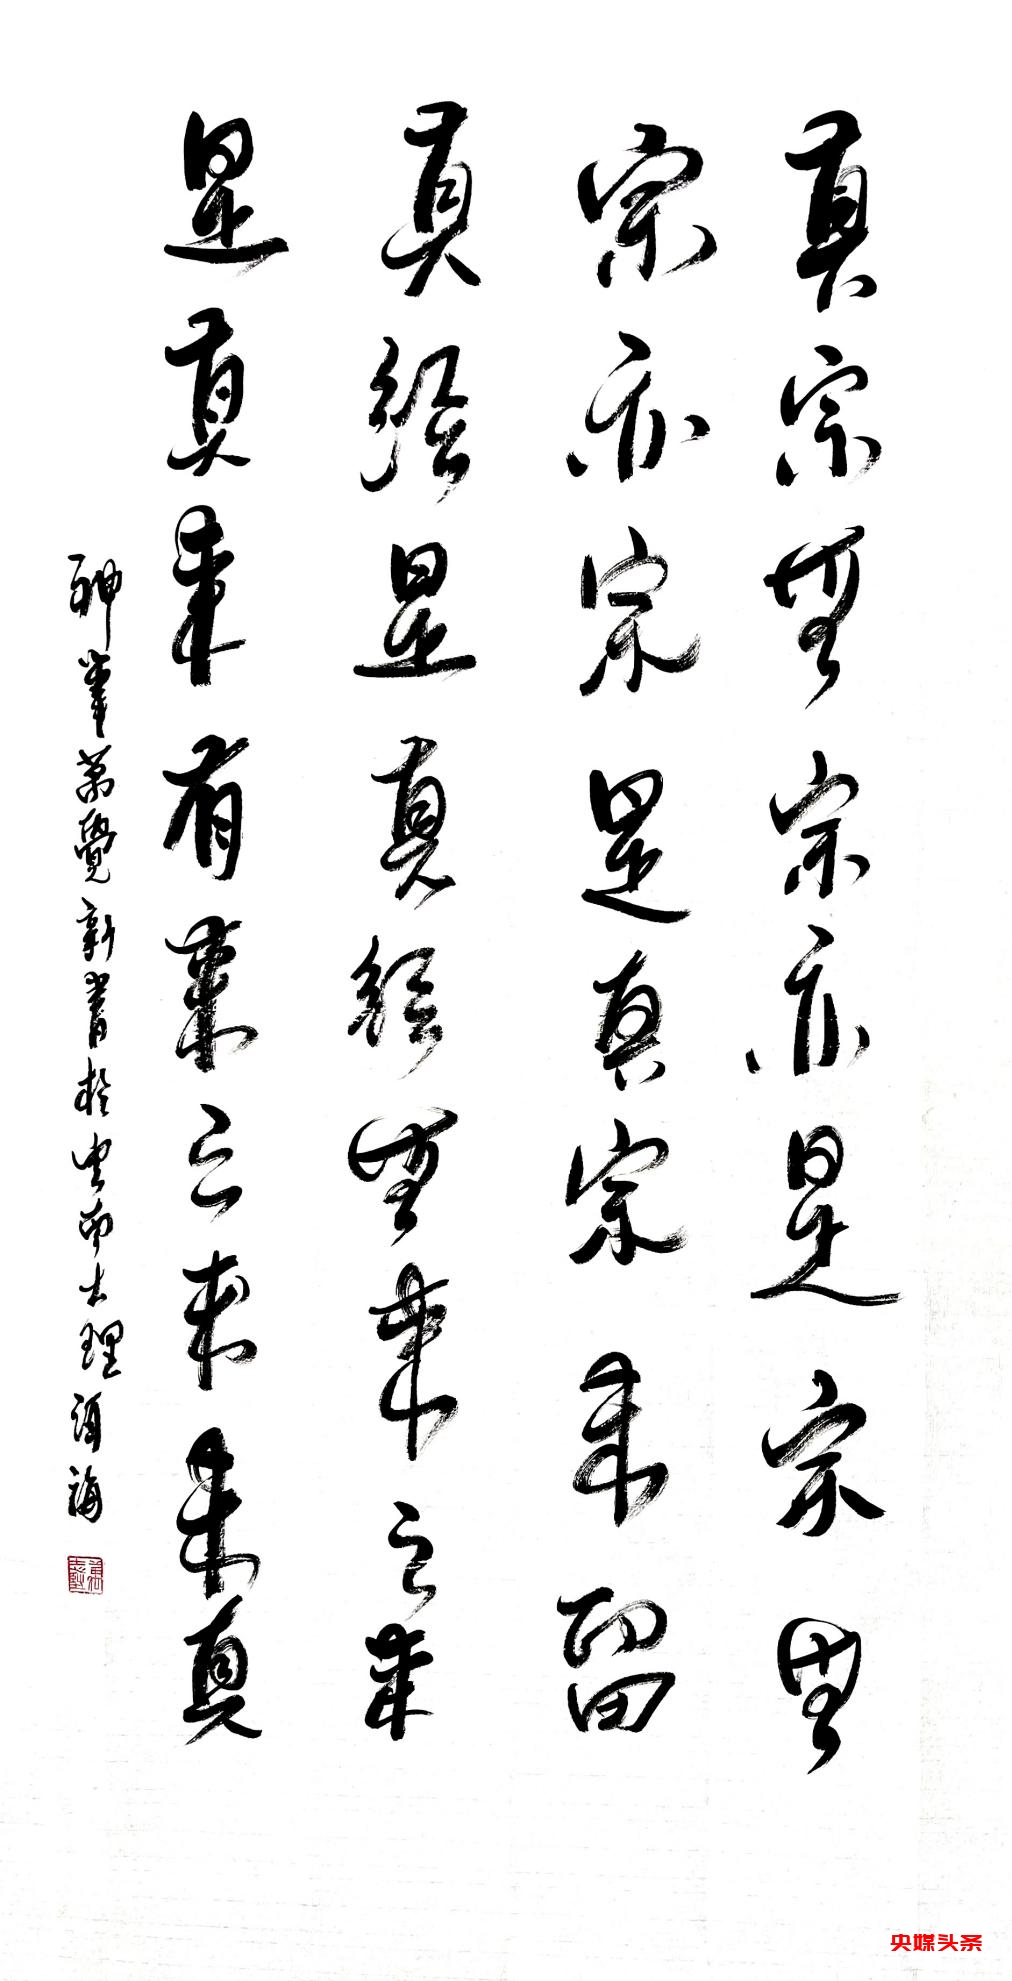 真宗無宗亦是宗無
宗亦宗是真宗來留
真經是真經無來之來
是真來有來之未來真
神筆萬覺新書於雲南大理洱海
央媒头条